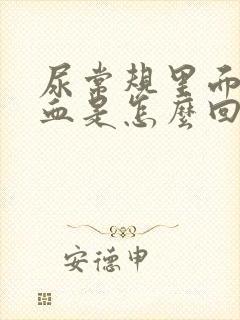 尿常規里面
血是怎麼回
安德申